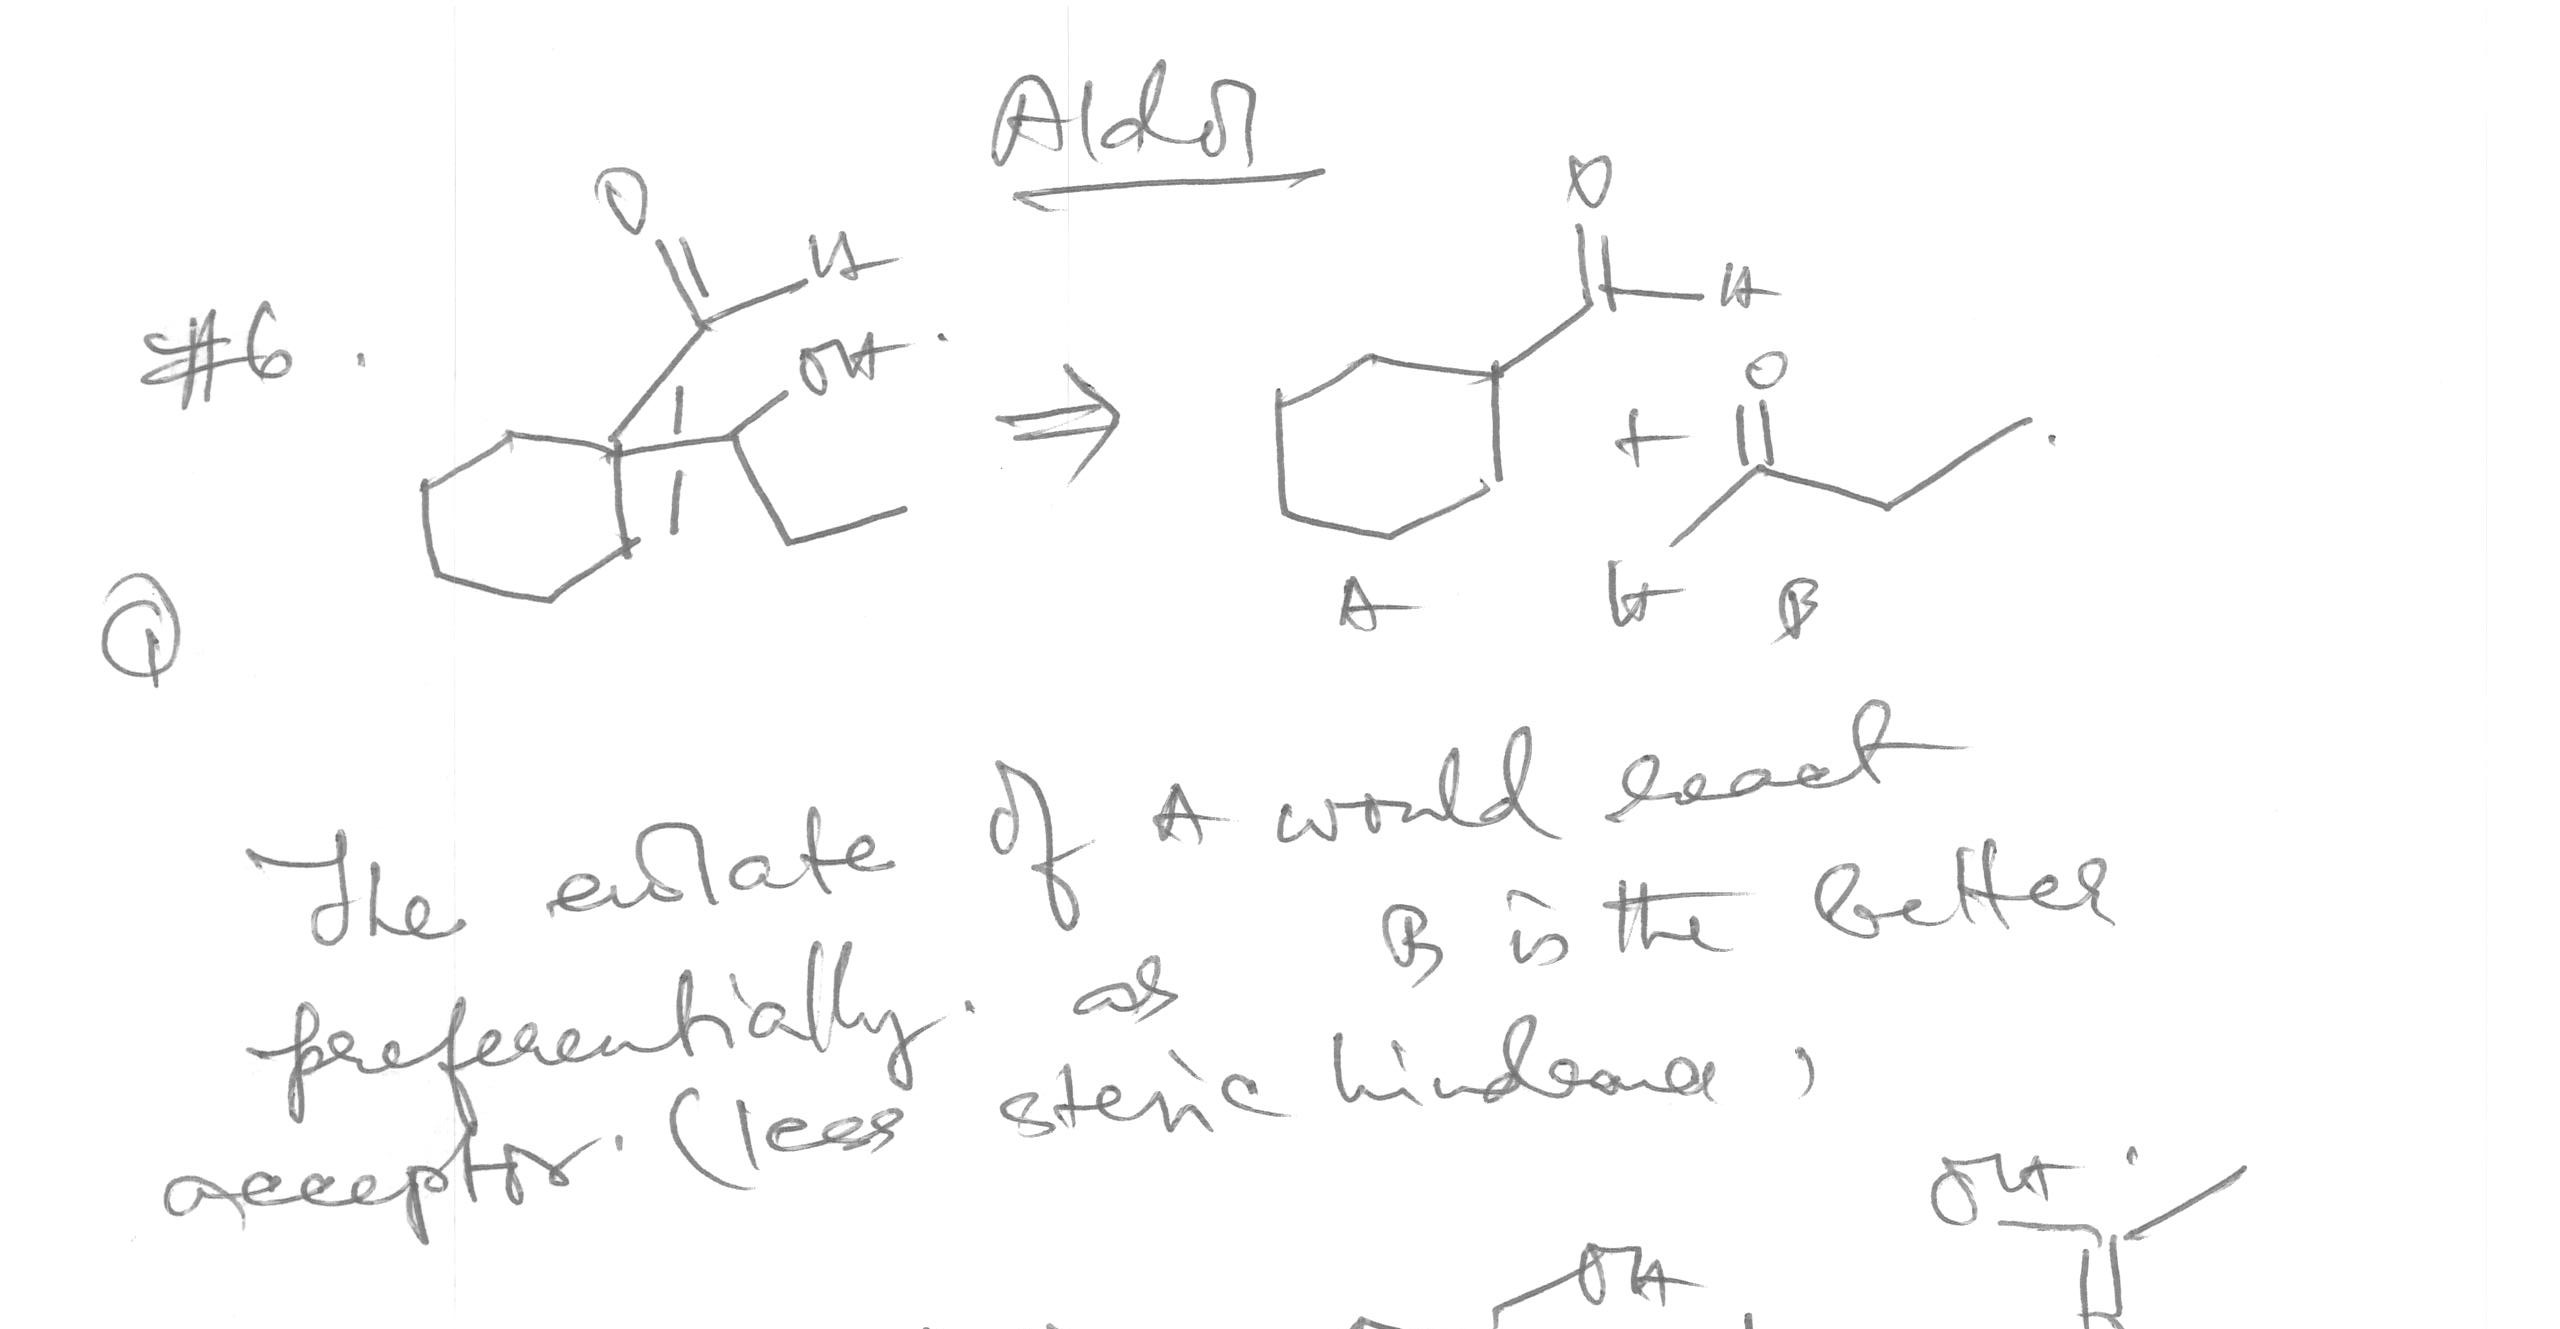 Aldol
O
H
O
#6.
OH
H
O
+
A
H
B
The enolate of A would react
preferentially. as B is the better
acceptor. (less steric hindrance,
OH
OH